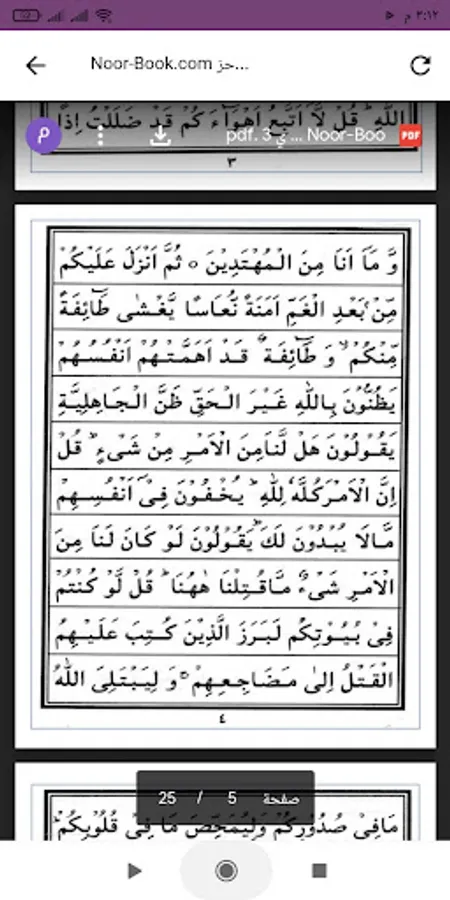 ٣:١٢ م
Noor-Book.com حز...
اللّٰهِ ۙ قُلْ لَّاۤ اَتَّبِعُ اَهْوَآءَ كُمْ قَدْ ضَلَلْتُ اِذًا
م
pdf. 3 ي... Noor-Boo
PDF
٣
وَّ مَاۤ اَنَا مِنَ الْمُهْتَدِيْنَ ○ ثُمَّ اَنْزَلَ عَلَيْكُمْ
مِّنْ بَعْدِ الْغَمِّ اَمَنَةً نُّعَاسًا يَّغْشٰى طَآئِفَةً
مِّنْكُمْ ۙ وَ طَآئِفَةٌ قَدْ اَهَمَّتْهُمْ اَنْفُسُهُمْ
يَظُنُّوْنَ بِاللّٰهِ غَيْرَ الْحَقِّ ظَنَّ الْجَاهِلِيَّةِ
يَقُوْلُوْنَ هَلْ لَّنَامِنَ الْاَمْرِ مِنْ شَىْءٍ ؕ قُلْ
اِنَّ الْاَمْرَكُلَّهٗ لِلّٰهِ ؕ يُخْفُوْنَ فِىْۤ اَنْفُسِهِمْ
مَّالَا يُبْدُوْنَ لَكَ ؕ يَقُوْلُوْنَ لَوْ كَانَ لَنَا مِنَ
الْاَمْرِ شَىْءٌ مَّاقُتِلْنَا هٰهُنَا ؕ قُلْ لَّوْ كُنْتُمْ
فِىْ بُيُوْتِكُمْ لَبَرَزَ الَّذِيْنَ كُتِبَ عَلَيْهِمُ
الْقَتْلُ اِلٰى مَضَاجِعِهِمْ ۚ وَ لِيَبْتَلِىَ اللّٰهُ
٤
صفحة 5 / 25
مَافِىْ صُدُوْرِكُمْ وَلِيُمَحِّصَ مَا فِىْ قُلُوْبِكُمْ ؕ